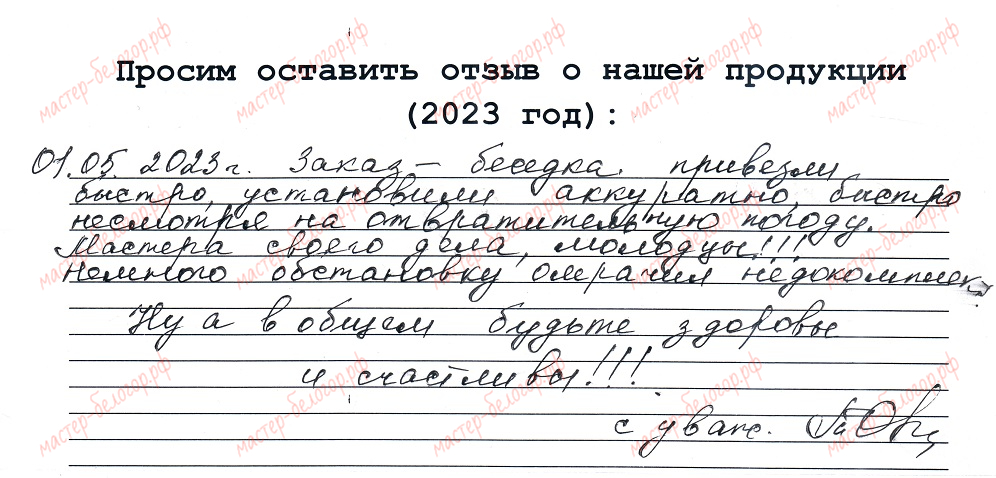 Просим оставить отзыв о нашей продукции
(2023 год):
01.05.2023г. Заказ – беседка. привезли
быстро, установили аккуратно, быстро
несмотря на отвратительную погоду.
Мастера своего дела, молодцы!!!
Немного обстановку омрачил недокомплект.
Ну а в общем будьте здоровы
и счастливы!!!
с уваж.
мастер-белогор.рф